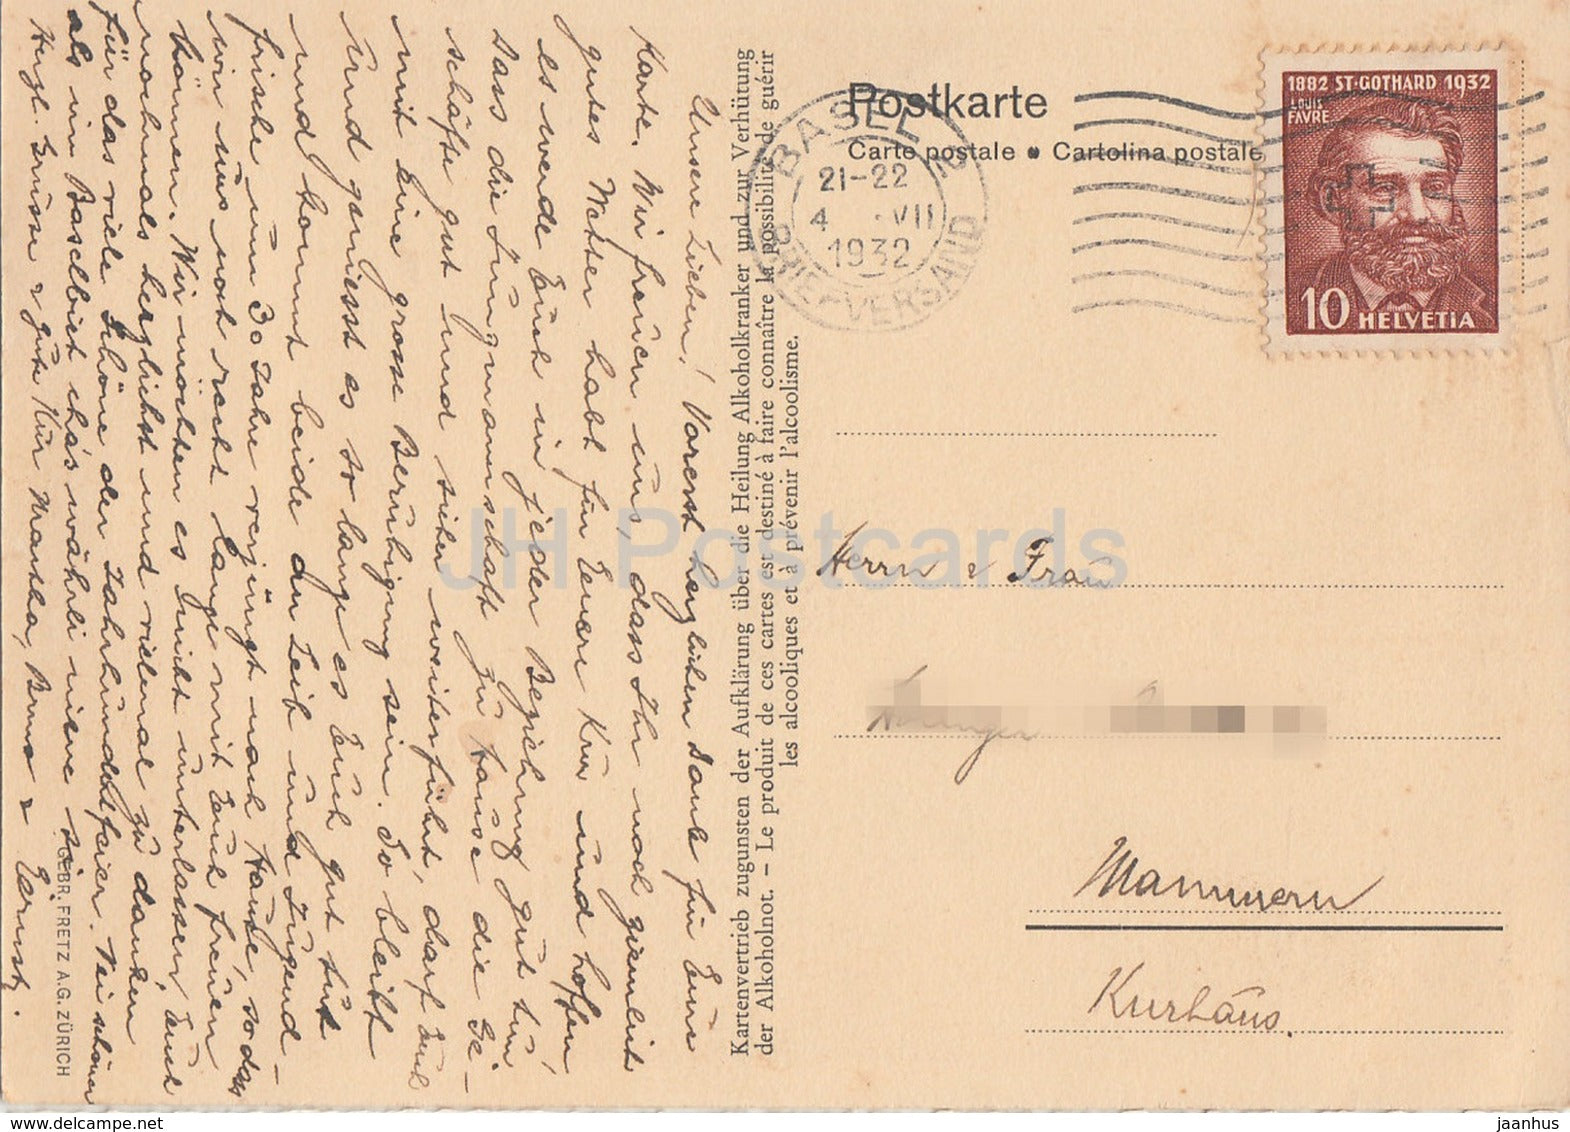 Unsere Lieben! Vorerst herzlichen Dank für Eure
Karte. Wir freuen uns, dass Ihr noch ziemlich
gutes Wetter habt für Eure Kur und hoffen
es werde Euch in jeder Beziehung gut tun,
Dass die Jungmannschaft zu Hause die Ge-
schäfte gut und sicher weiterführt, darf Euch
mit Eine grosse Beruhigung sein. So bleibt
und geniesst es so lange es Euch gut tut
und kommt beide an Leib und Jugend-
frische um 30 Jahre verjüngt nach Hause, sodass
wir uns noch recht lange mit Euch freuen
können. Wir möchten es nicht unterlassen, Euch
nochmals herzlichst und vielmal zu danken
für das viele Schöne der Jahrhundertfeier. Nei schöner
als im Baselbiet cha's währli niene si
Hzgl. Grüsse & gute Kur Martha, Bruno & Ernst.
GEBR. FRETZ A.G. ZÜRICH
Kartenvertrieb zugunsten der Aufklärung über die Heilung Alkoholkranker und zur Verhütung
der Alkoholnot. – Le produit de ces cartes est destiné à faire connaître la possibilité de guérir
les alcooliques et à prévenir l'alcoolisme.
Postkarte
Carte postale • Cartolina postale
BASEL 2
21-22
4 VII
1932
BRIEFVERSAND
1882 ST·GOTHARD 1932
LOUIS
FAVRE
10 HELVETIA
Herrn & Frau
Mammern
Kurhaus.
JH Postcards
www.delcampe.net
jaanhus